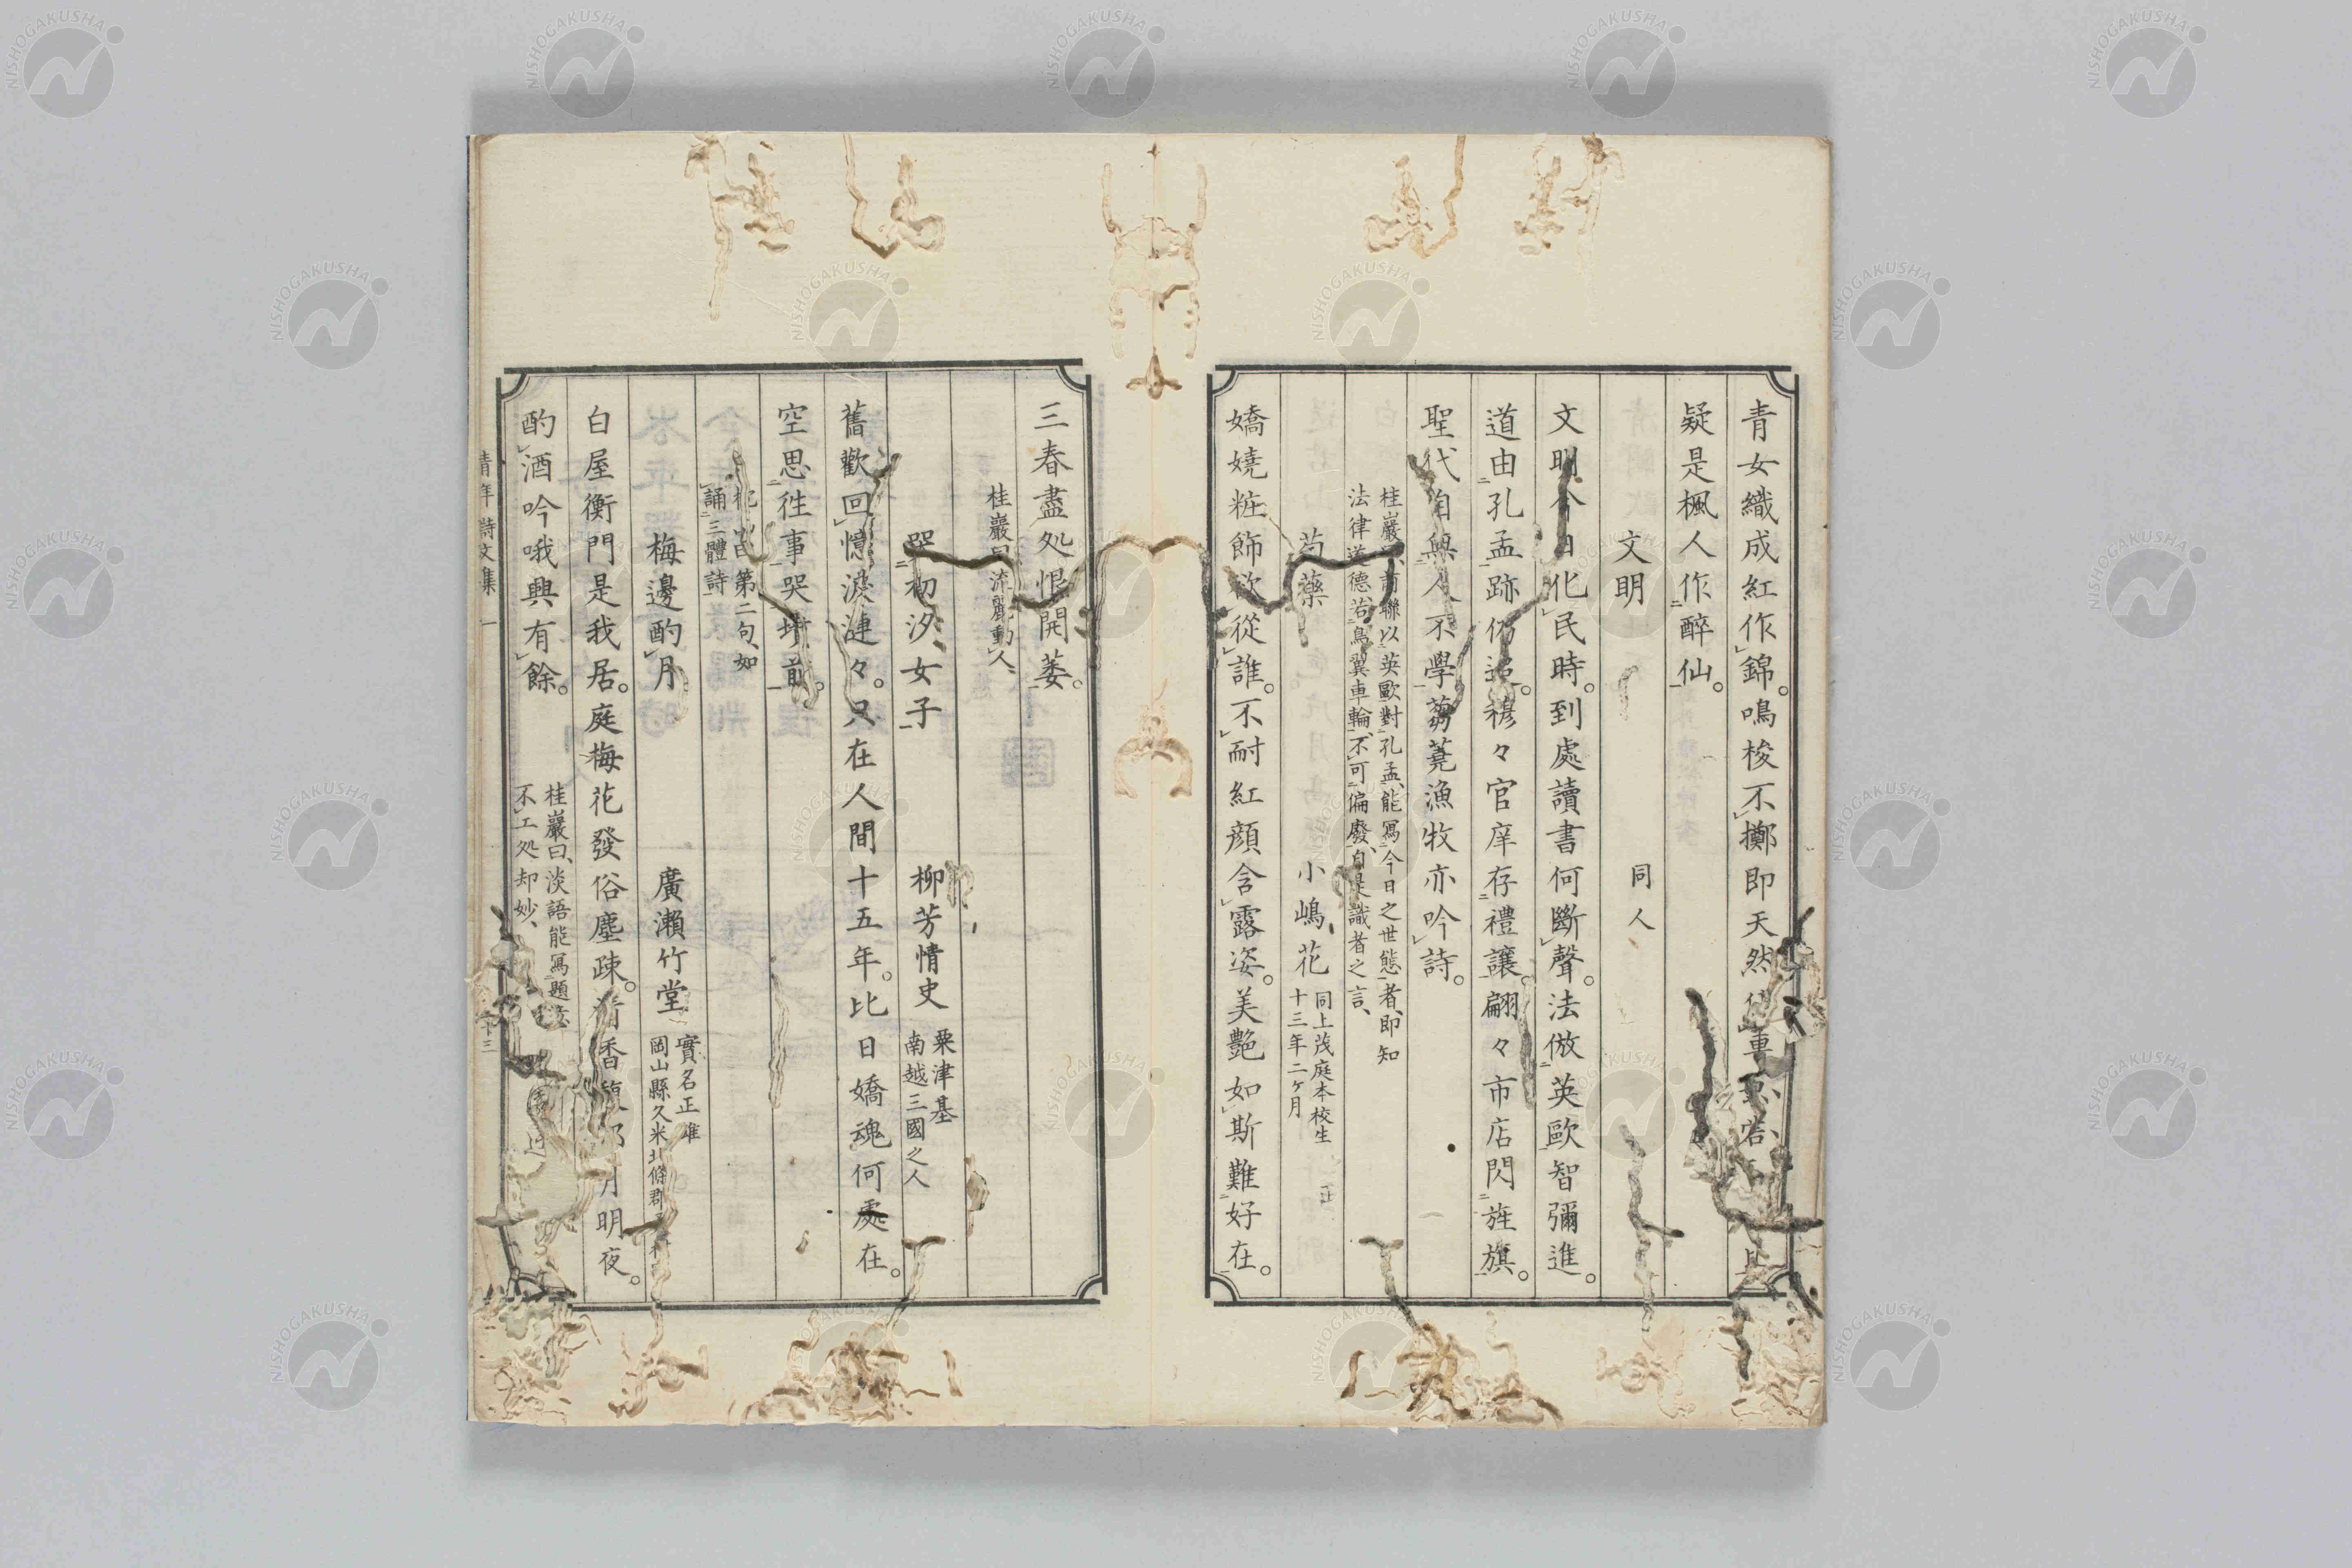 青女織成紅作錦。鳴梭不擲即天然
疑是楓人作醉仙。
文明 同人
文明今日化民時。到處讀書何斷聲。法倣英歐智彌進。
道由孔孟跡仍追。穆々官庠存禮讓。翩々市店閃旌旗。
聖代自無人不學。蒭蕘漁牧亦吟詩。
桂巖曰、前聯以英歐對孔孟、能冩今日之世態者、即知
法律道德若鳥翼車輪、不可偏廢、自是識者之言、
芍藥 小嶋花 同上茂庭本校生
十三年二ヶ月
嬌嬈粧飾欲從誰。不耐紅顔含露姿。美艶如斯難好在。
三春盡処恨開萋。
桂巖曰、流麗動人、
哭初汐女子 柳芳情史 粟津基
南越三國之人
舊歡回憶涙漣々。只在人間十五年。比日嬌魂何處在。
空思徃事哭墳前。
第二句、如
誦三體詩
梅邊酌月 廣瀬竹堂 實名正雄
岡山縣久米北條郡
白屋衡門是我居。庭梅花發俗塵疎。清香 月明夜。
酌酒吟哦興有餘。 桂巖曰、淡語能冩題意
不工処却妙、
青年詩文集 一 十三
NISHOGAKUSHA